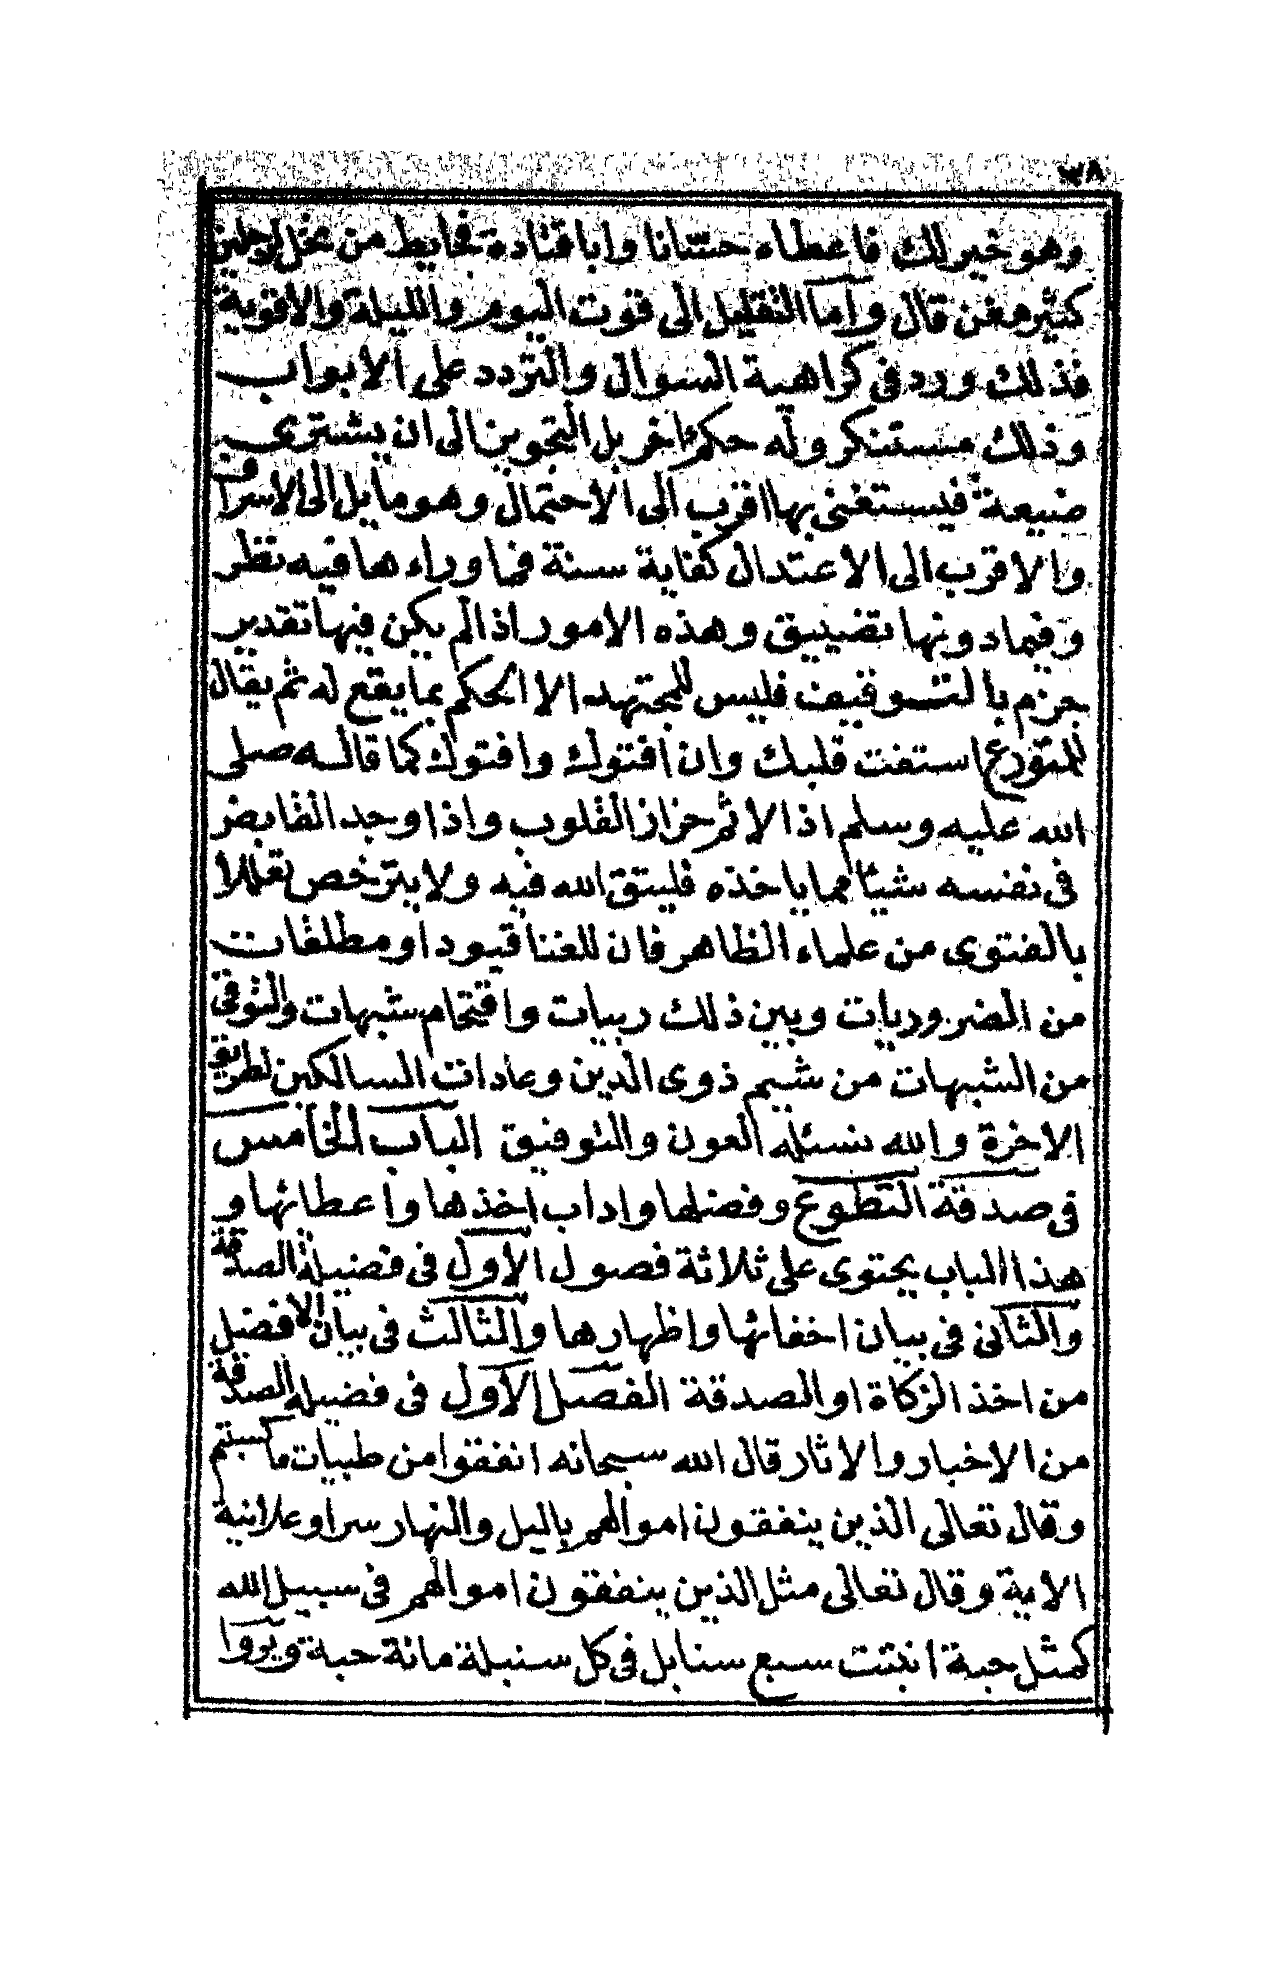 ٣٨
وهو خير لك فاعطاه حسانا وابا قتادة فحايط من نخل لرجلين
كثير غني قال واما التقليل الى قوت اليوم والليلة والاوقية
فذلك ورد في كراهية السوال والتردد على الابواب
وذلك مستنكر وله حكم اخر بل التجويز الى ان يشترى
ضيعة فيستغنى بها اقرب الى الاحتمال وهو مايل الى الاسراف
والاقرب الى الاعتدال كفاية سنة فما وراءها فيه نظر
وفيما دونها تضييق وهذه الامور اذا لم يكن فيها تقدير
جزم بالتوقيف فليس للمجتهد الا الحكم بما يقع له ثم يقال
للمتورع استفت قلبك وان افتوك وافتوك كما قاله صلى
الله عليه وسلم اذ الاثم حزاز القلوب واذا وجد القابض
في نفسه شيئا مما ياخذه فليتق الله فيه ولا يترخص تعللا
بالفتوى من علماء الظاهر فان للغنا قيود او مطلقات
من الضروريات وبين ذلك ريبات واقتحام شبهات والتوقي
من الشبهات من شيم ذوى الدين وعادات السالكين لطريق
الاخرة والله نسئله العون والتوفيق الباب الخامس
في صدقة التطوع وفضلها واداب اخذها واعطائها و
هذا الباب يحتوى على ثلاثة فصول الاول في فضيلة الصدقة
والثاني في بيان اخفائها واظهارها والثالث في بيان الافضل
من اخذ الزكاة او الصدقة الفصل الاول في فضيلة الصدقة
من الاخبار والاثار قال الله سبحانه انفقوا من طيبات ما كسبتم
وقال تعالى الذين ينفقون اموالهم باليل والنهار سرا وعلانية
الاية وقال تعالى مثل الذين ينفقون اموالهم في سبيل الله
كمثل حبة انبتت سبع سنابل في كل سنبلة مائة حبة ويروا